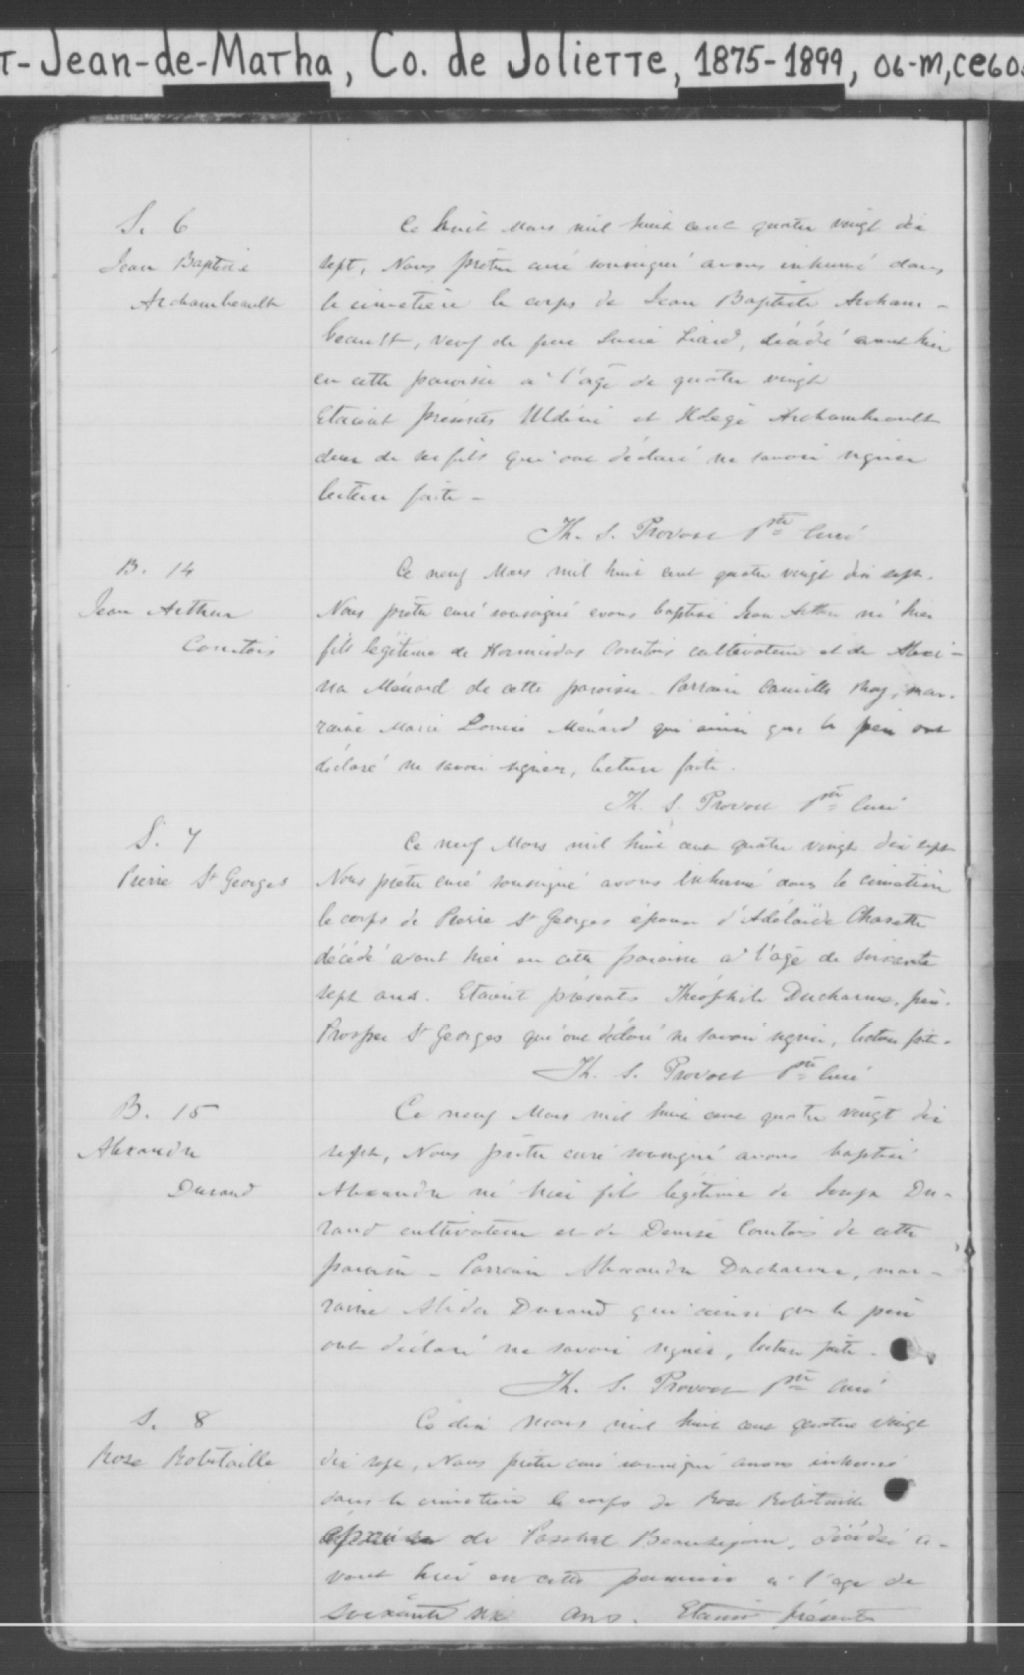 T-Jean-de-Matha, Co. de Joliette, 1875-1899, 06-M,CE60
S. 6
Jean Baptiste
Archambeault
Ce huit Mars mil huit cent quatre vingt dix
sept, Nous prêtre curé soussigné avons inhumé dans
le cimetière le corps de Jean Baptiste Archam-
beault, veuf de feue Liard, décédé avant hier
en cette paroisse a l'âge de quatre vingt
Etaient présents et Archambeault
deux de ses fils qui ont déclaré ne savoir signer
lecture faite -
Th. S. Provost Ptre Curé
B. 14
Jean Arthur
Comtois
Ce neuf Mars mil huit cent quatre vingt dix sept.
Nous prêtre curé soussigné avons baptisé Jean Arthur né hier
fils légitime de Hormisdas Comtois cultivateur et de Alexi-
na Ménard de cette paroisse. Parrain Camille Roy, mar-
raine Marie Louise Ménard qui ainsi que le père ont
déclaré ne savoir signer, lecture faite.
Th. S. Provost Ptre Curé
S. 7
Pierre St Georges
Ce neuf Mars mil huit cent quatre vingt dix sept
Nous prêtre curé soussigné avons inhumé dans le cimetière
le corps de Pierre St Georges époux d'Adélaïde Charette
décédé avant hier en cette paroisse a l'âge de soixante
sept ans. Etaient présents Théophile Ducharme,
Prosper St Georges qui ont déclaré ne savoir signer, lecture faite.
Th. S. Provost Ptre Curé
B. 15
Alexandre
Durand
Ce neuf Mars mil huit cent quatre vingt dix
sept, Nous prêtre curé soussigné avons baptisé
Alexandre né hier fils légitime de Du-
rand cultivateur et de Denise Comtois de cette
paroisse - Parrain Alexandre Ducharme, mar-
raine Alida Durand qui ainsi que le père
ont déclaré ne savoir signer, lecture faite.
Th. S. Provost Ptre Curé
S. 8
Rose Robitaille
Ce dix mars mil huit cent quatre vingt
dix sept, Nous prêtre curé soussigné avons inhumé
dans le cimetière le corps de Rose Robitaille
épouse de Paschal Beausejour, décédée a-
vant hier en cette paroisse a l'age de
soixante six ans. Etaient présents